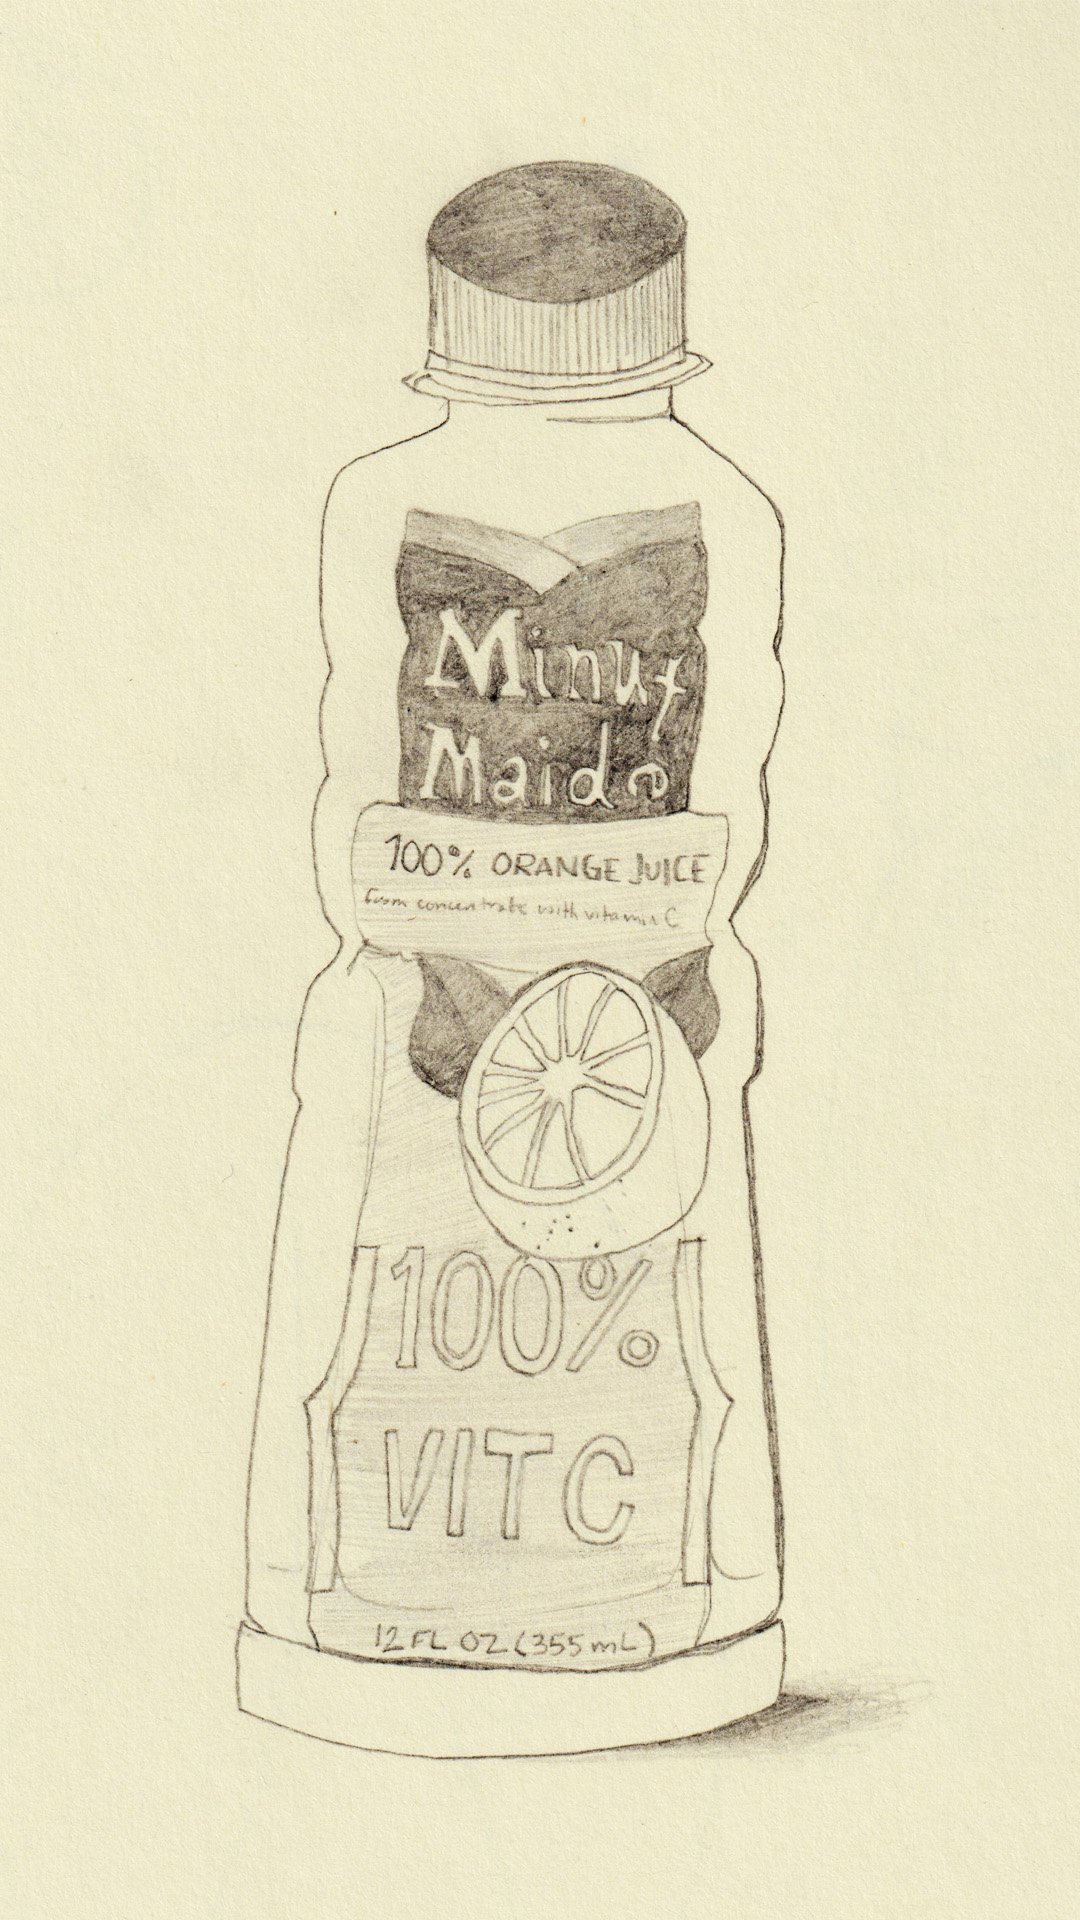 Minut
Maid ®
100% ORANGE JUICE
from concentrate with vitamin C
100%
VIT C
12 FL OZ (355 mL)